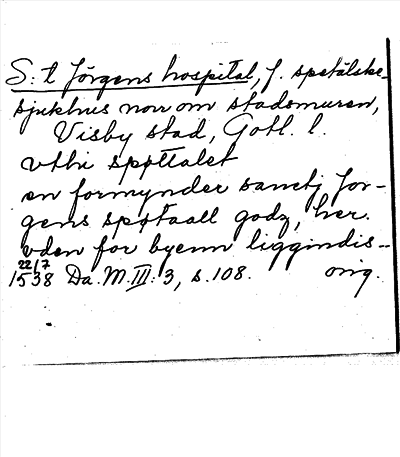 S:t Jörgens hospital, f. spetälske-
sjukhus norr om stadsmuren,
Visby stad, Gotl. l.
vthi spøttalet
en formynder sanctj Jor-
gens spøtaall godz, her.
vden for byenn liggindis--
22/7
1538 Da. M. III: 3, s. 108. orig.